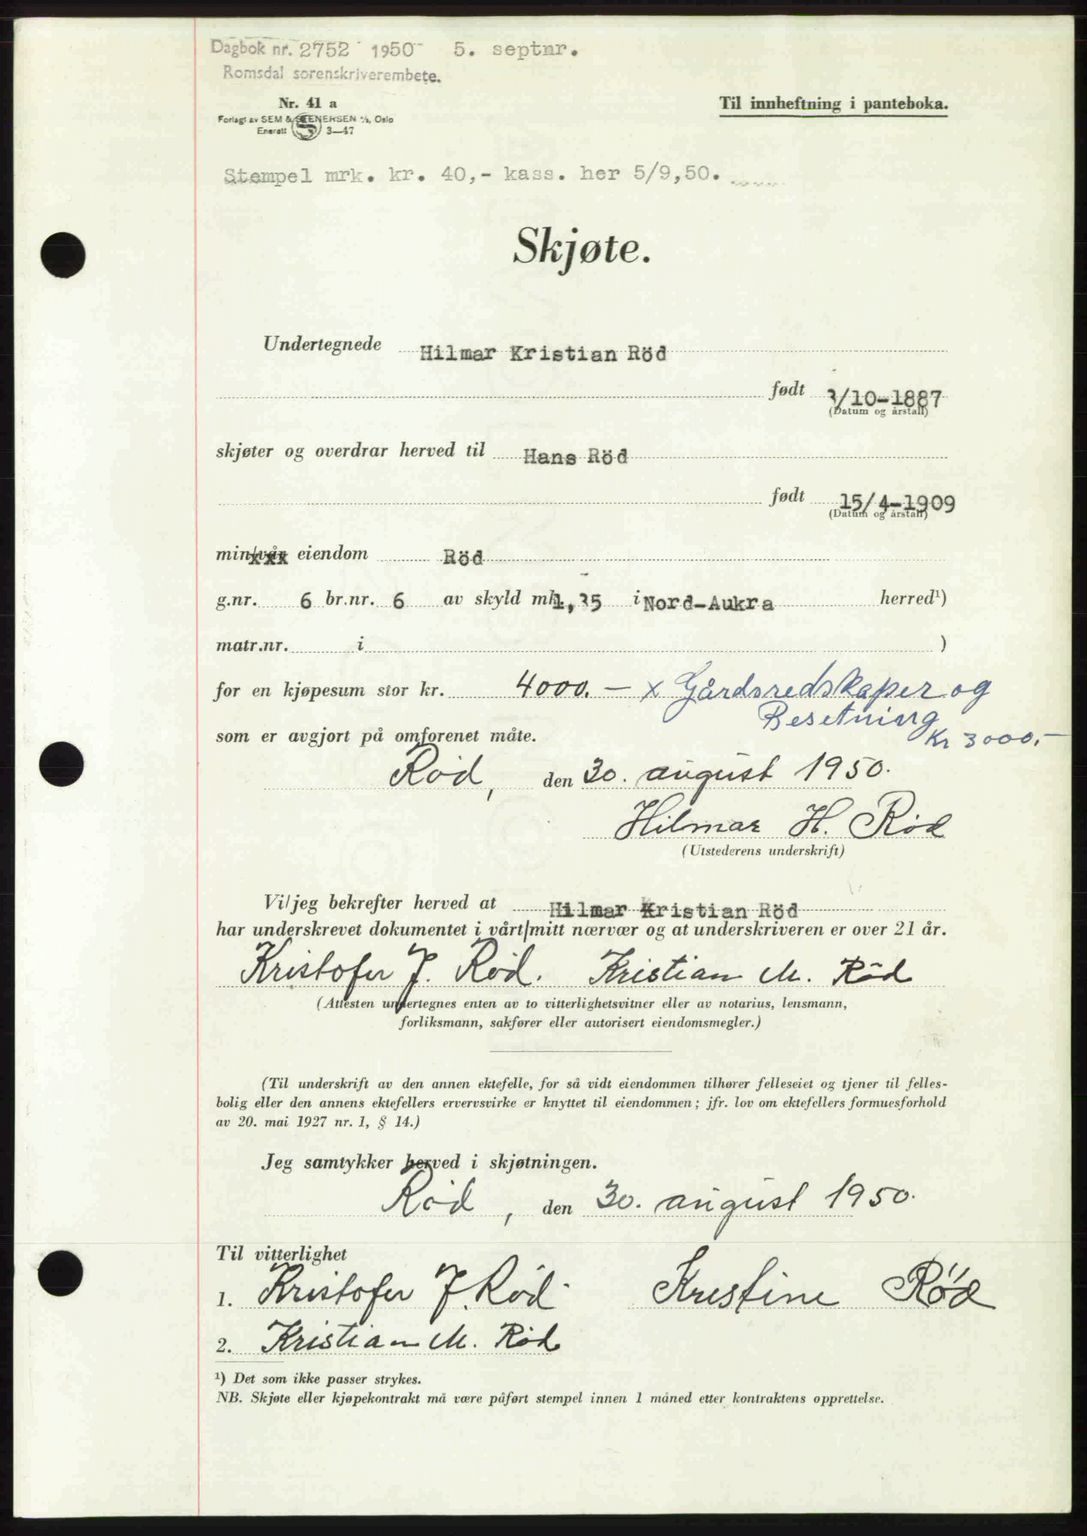 Dagbok nr. 2752 1950 5. septnr.
Romsdal sorenskriverembete.
Nr. 41 a
Til innheftning i panteboka.
Forlagt av SEM & STENERSEN A/S, Oslo
Enerett S 3—47
Stempel mrk. kr. 40,- kass. her 5/9,50.
Skjøte.
Undertegnede Hilmar Kristian Röd
født 3/10-1887
(Datum og årstall)
skjøter og overdrar herved til Hans Röd
født 15/4-1909
(Datum og årstall)
min/vår eiendom Röd
g.nr. 6 br.nr. 6 av skyld mk. 1,35 i Nord-Aukra herred¹)
matr.nr. i )
for en kjøpesum stor kr. 4000.— x Gårdsredskaper og
Besetning
Kr 3000,-
som er avgjort på omforenet måte.
Rød, den 30. august 1950.
Hilmar H. Rød
(Utstederens underskrift)
Vi/jeg bekrefter herved at Hilmar Kristian Röd
har underskrevet dokumentet i vårt/mitt nærvær og at underskriveren er over 21 år.
Kristofer J. Rød. Kristian M. Rød
(Attesten undertegnes enten av to vitterlighetsvitner eller av notarius, lensmann,
forliksmann, sakfører eller autorisert eiendomsmegler.)
(Til underskrift av den annen ektefelle, for så vidt eiendommen tilhører felleseiet og tjener til felles-
bolig eller den annens ektefellers ervervsvirke er knyttet til eiendommen; jfr. lov om ektefellers formuesforhold
av 20. mai 1927 nr. 1, § 14.)
Jeg samtykker herved i skjøtningen.
Rød, den 30. august 1950.
Til vitterlighet
1. Kristofer J. Rød. Kristine Röd
2. Kristian M. Rød
¹) Det som ikke passer strykes.
NB. Skjøte eller kjøpekontrakt må være påført stempel innen 1 måned etter kontraktens opprettelse.